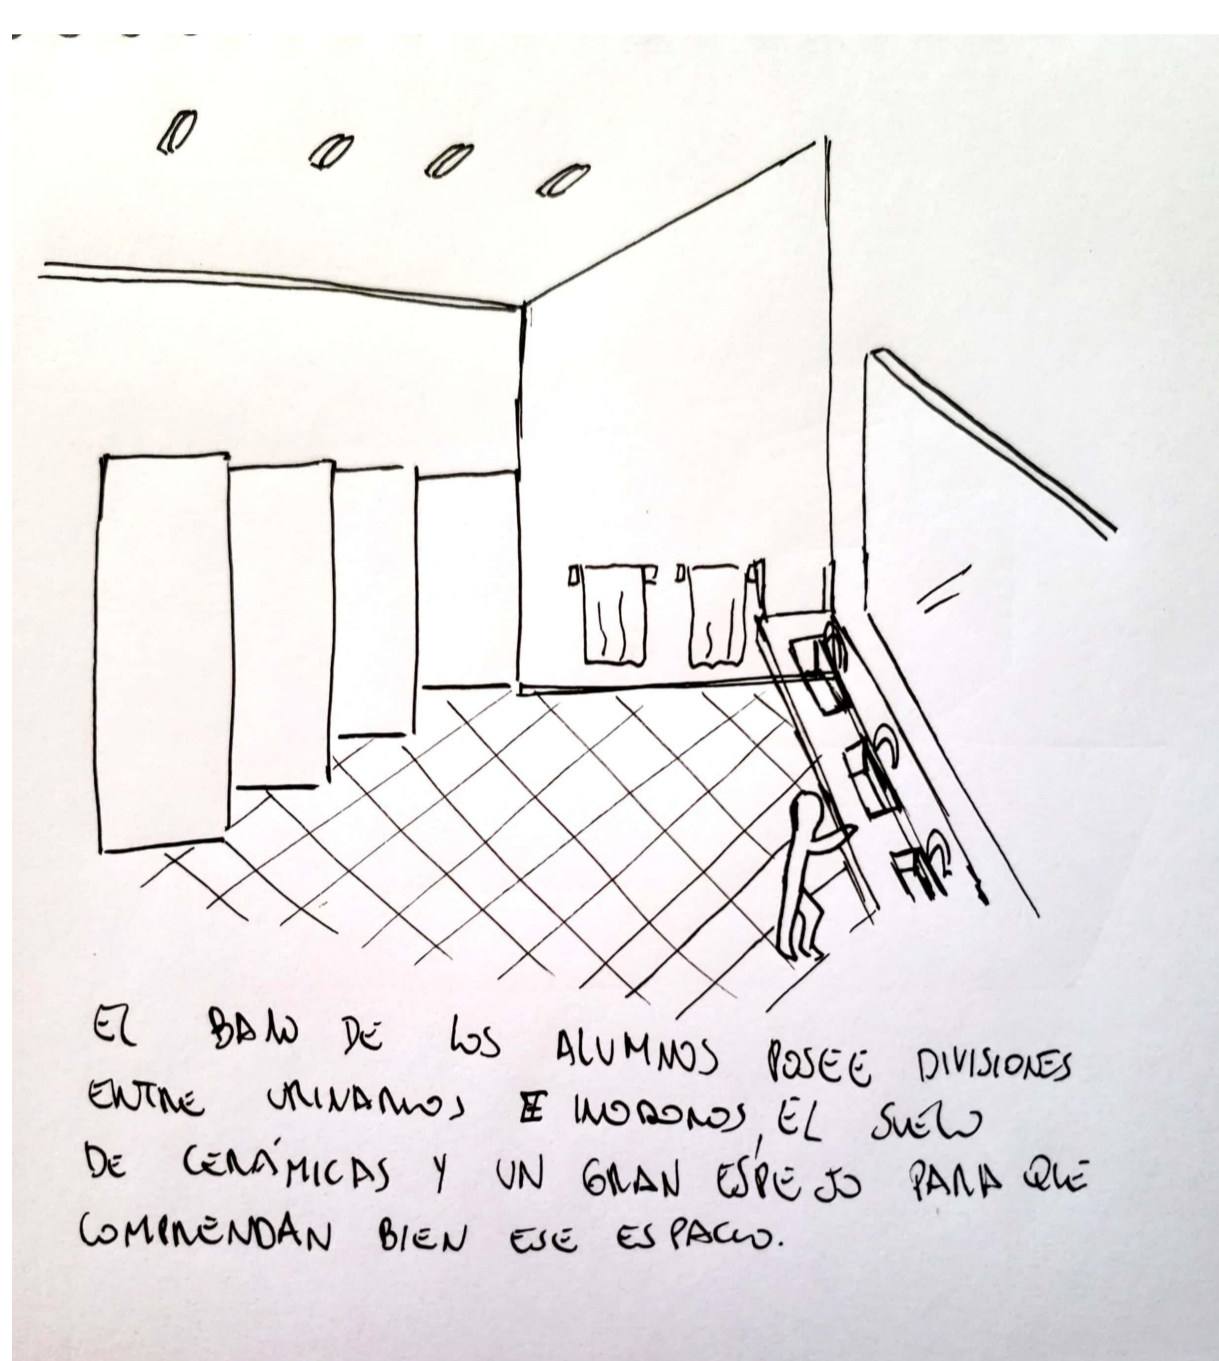 EL BAÑO DE LOS ALUMNOS POSEE DIVISIONES
ENTRE URINARIOS E INODOROS, EL SUELO
DE CERÁMICAS Y UN GRAN ESPEJO PARA QUE
COMPRENDAN BIEN ESE ESPACIO.